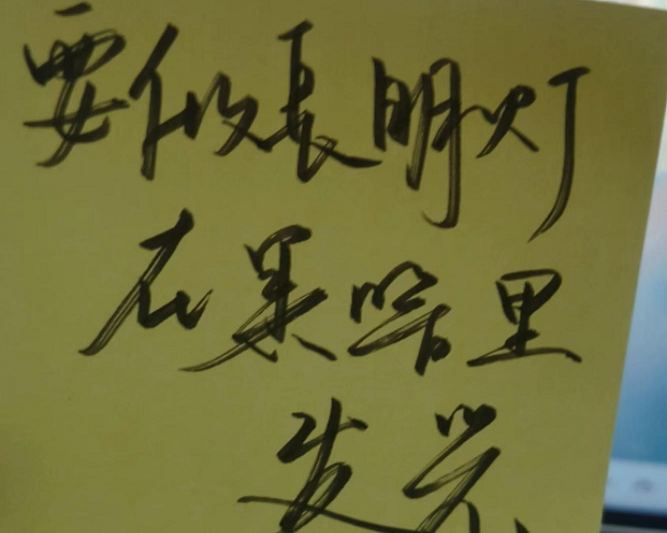 要做長明灯
在黑暗里
发光